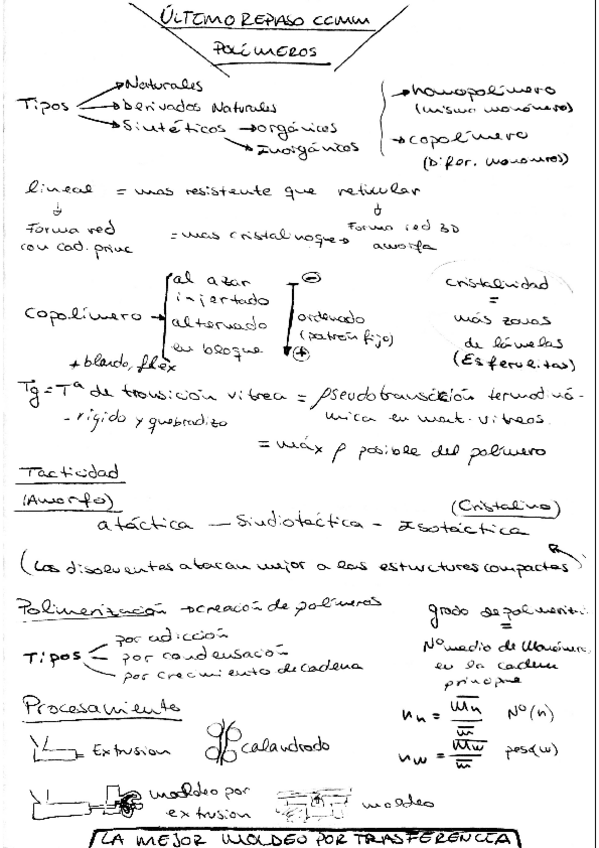 ÚLTIMO REPASO CCMM
POLÍMEROS
Tipos
Naturales
Derivados Naturales
Sintéticos → orgánicos
Inorgánicos
→ homopolímero
(mismo monómero)
→ copolímero
(Difer. monomeros)
lineal = mas resistente que reticular
Forma red con cad. princ
= mas cristalino que →
Forma red 3D amorfa
Copolímero →
al azar
injertado
alternado
en bloque
⊖
ordenado
(patrón fijo)
⊕
cristalinidad
=
más zonas
de lámelas
(Esferulitas)
+ blando, flex
Tg = Tª de transición vitrea = pseudotransición termodiná-
- rígido y quebradizo
mica en mat. vitreos.
= máx ρ posible del polímero
Tacticidad
(Amorfo)
(Cristalino)
atáctica — Sindiotáctica - Isotáctica
(Los disolventes atacan mejor a las estructures compactas)
Polimerización → creación de polímeros
Tipos
por adicción
por condensación
por crecimiento de cadena
grado de polimeriti.
=
Nº medio de Monómeros
en la cadena
principal
Procesamiento
Extrusion
calandrado
moldeo por
extrusion
moldeo
nn = Mn / m Nº(n)
nw = Mw / m peso(w)
LA MEJOR MOLDEO POR TRASFERENCIA